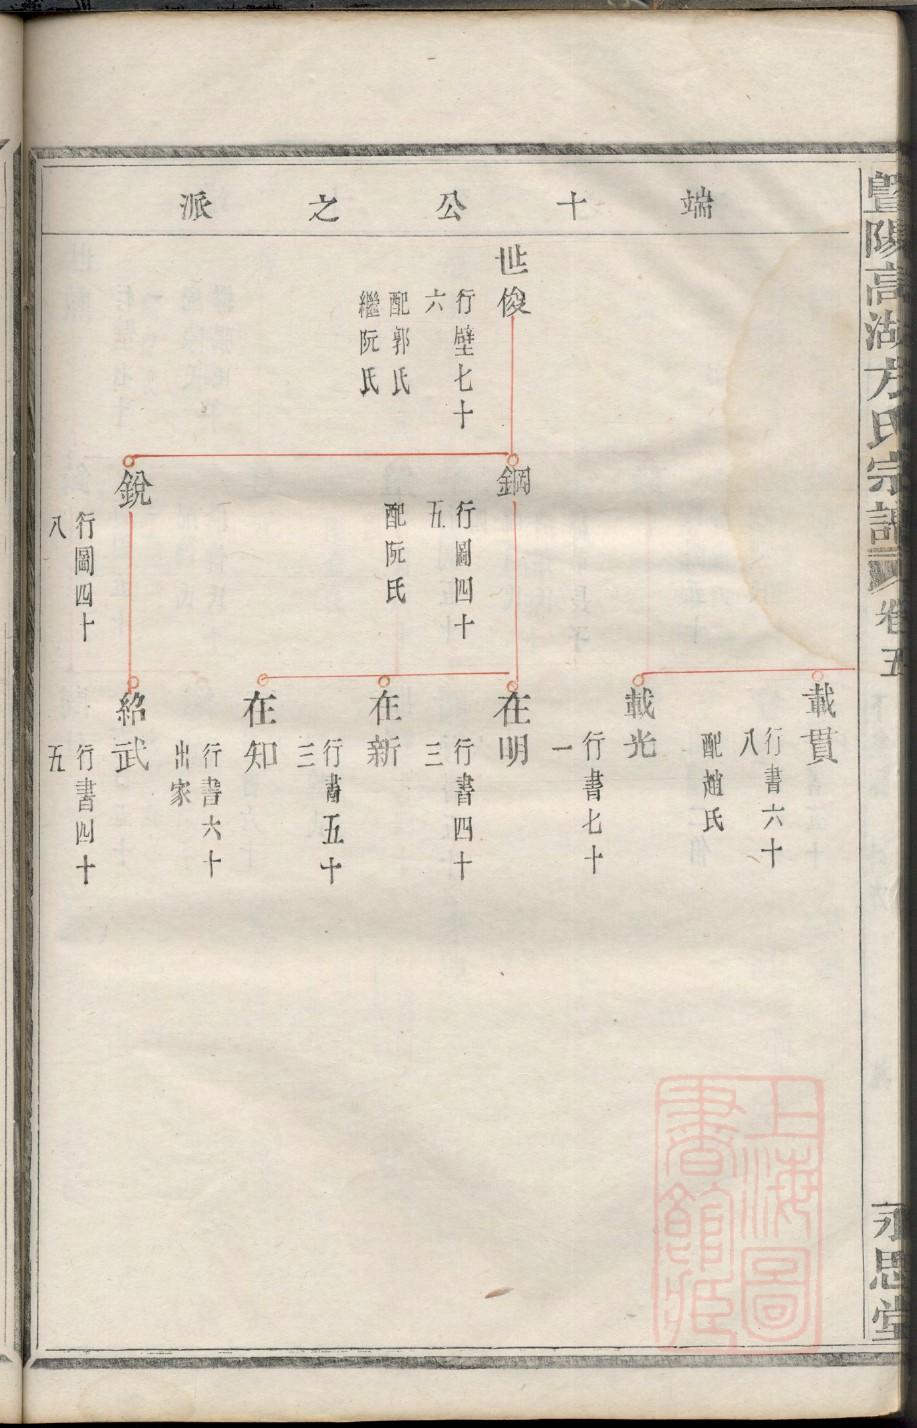 暨陽高湖方氏宗譜
卷五
永思堂
端十公之派
世俊
行壁七十
六
配郭氏
繼阮氏
鋼
行圖四十
五
配阮氏
銳
行圖四十
八
載貫
行書六十
八
配趙氏
載光
行書七十
一
在明
行書四十
三
在新
行書五十
三
在知
行書六十
出家
紹武
行書四十
五
上海圖
書館藏